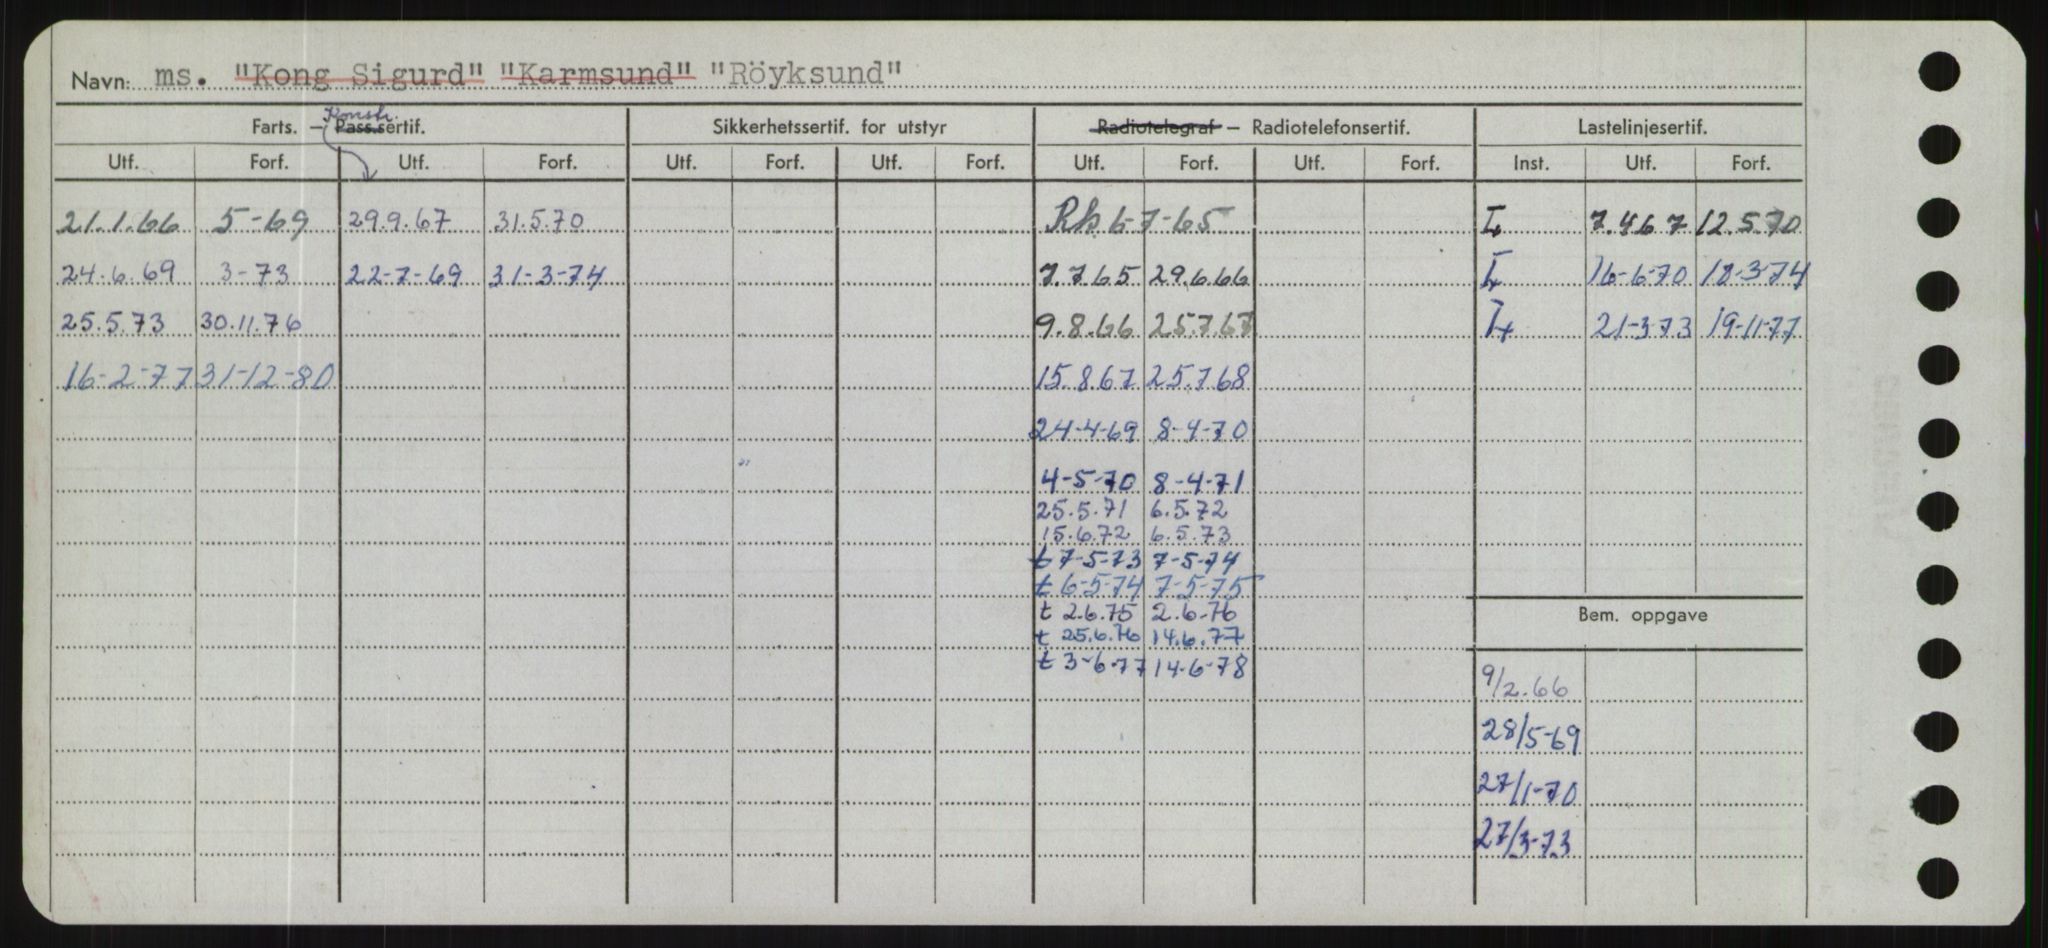 Navn: ms. "Kong Sigurd" "Karmsund" "Röyksund"
Konstr.
Farts. – Pass.sertif. Sikkerhetssertif. for utstyr Radiotelegraf – Radiotelefonsertif. Lastelinjesertif.
Utf. Forf. Utf. Forf. Utf. Forf. Utf. Forf. Utf. Forf. Utf. Forf. Inst. Utf. Forf.
21.1.66 5-69 29.9.67 31.5.70 Rk. 6-7-65 7.4.67 12.5.70
24.6.69 3-73 22-7-69 31-3-74 7.7.65 29.6.66 16-6-70 18-3-74
25.5.73 30.11.76 9.8.66 25.7.67 21-3-73 19-11-77
16-2-77 31-12-80 15.8.67 25.7.68
24-4-69 8-4-70
4-5-70 8-4-71
25.5.71 6.5.72
15.6.72 6.5.73
t 7-5-73 7-5-74
t 6-5-74 7-5-75
t 2.6.75 2.6.76
Bem. oppgave
t 25.6.76 14.6.77
t 3-6-77 14-6-78
9/2.66
28/5-69
27/1-70
27/3-73